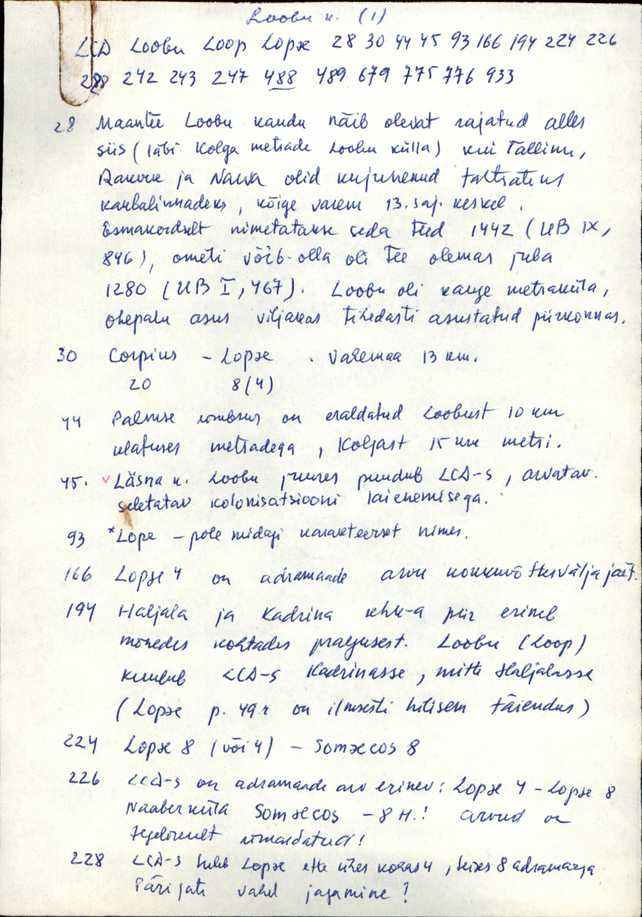 Loobu k. (1)
LCD Loobu Loop Lopæ 28 30 44 45 93 166 194 224 226
228 242 243 247 488 489 679 775 776 933
28 Maantee Loobu kaudu näib olevat rajatud alles
siis (läbi Kolga metsade Loobu külla) kui Tallinn,
Rakvere ja Narva olid kujunenud
kaubalinnadeks, kõige varem 13. saj. keskel.
Esmakordselt nimetatakse seda teed 1442 (UB IX,
846), ometi võib-olla oli tee olemas juba
1280 (UB I, 467). Loobu oli kauge metsaküla,
ehepalu asus viljakas tihedasti asustatud piirkonnas.
30 Corpius - Lopæ . Vahemaa 13 km.
20 8(4)
44 Palmse ümbrus on eraldatud Loobust 10 km
ulatuses metsadega, Koljast 15 km metsi.
45. Läsna k. Loobu juures puudub LCD-s, arvatav.
seletatav kolonisatsiooni laienemisega.
93 *Lope - pole midagi karakteerset nimes.
166 Lopæ 4 on adramaade arvu kokkuvõttes välja jäet.
194 Haljala ja Kadrina khk-a piir erineb
mõnedes kohtades praegusest. Loobu (Loop)
kuulub LCD-s Kadrinasse, mitte Haljalasse
(Lopæ p. 49r on ilmsesti hilisem täiendus)
224 Lopæ 8 (või 4) - Somæcos 8
226 LCD-s on adramaade arv erinev: Lopæ 4 - Lopæ 8
Naaberküla Somæcos - 8 H.! arvud on
ümardatud!
228 LCD-s tuleb Lopæ ette ühes kohas 4, teises 8 adramaaga
Pärijate vahel jagamine?